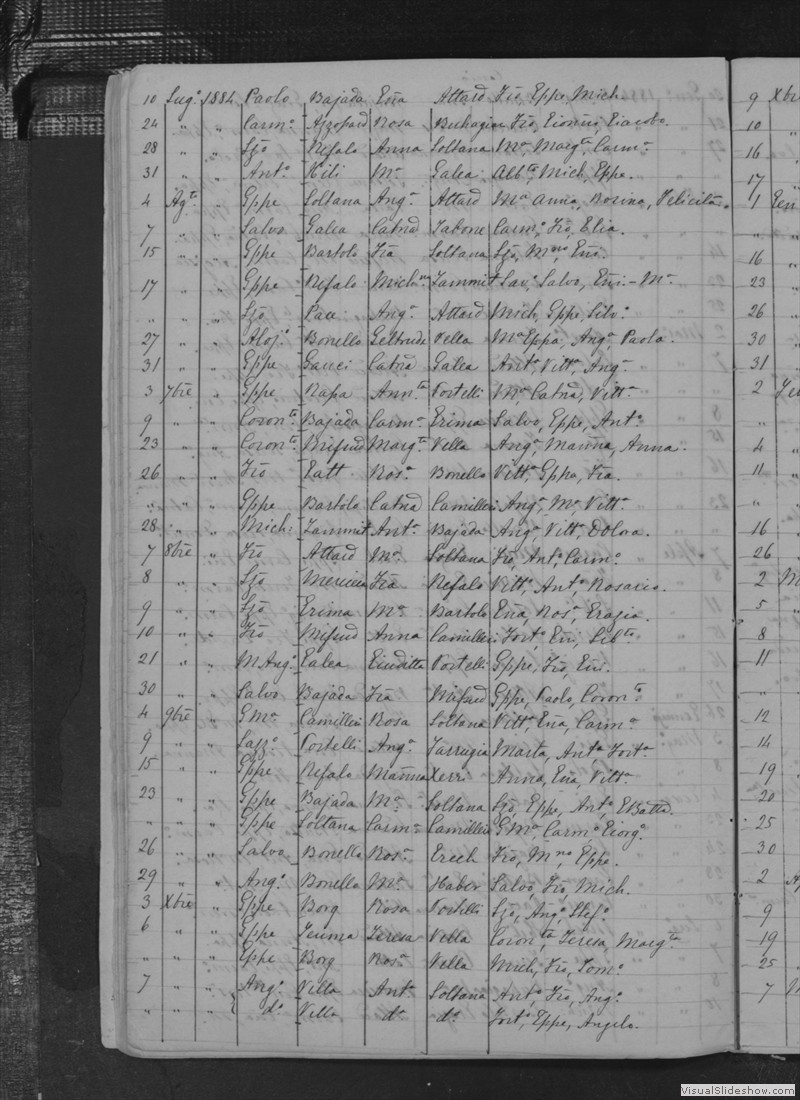 10 Lug.o 1884 Paolo Bajada Eña Attard Frõ, Eppe, Mich.
24 " " Carm.o Azzopard Rosa Buhagiar Frõ,
28 " " Sfõ Refalo Anna Soltana M.a, Marg.ta, Carm.a
31 " " Ant.o M.a Galea Mich, Eppe.
4 Ag.to " Gppe Soltana Ang.a Attard M.a Anna, Rosina, Felicita.
7 " " Salvo Galea Catnã Tabone Carm.o, Frõ, Elia.
15 " " Gppe Bartolo Frã Soltana Sfõ, M.no, Eñi.
17 " " Gppe Refalo Mich.na Zammit Sav.o, Salvo, Eñi.- M.a
" " " Sfõ Pace Ang.a Attard Mich, Gppe, Silv.o
27 " " Aloj.o Bonello Geltrude Vella M.a Eppa, Ang.a, Paola.
31 " " Gppe Gauci Catnã Galea Ant.a, Vitt.a, Ang.a
3 7bre " Gppe Rapa Ann.ta Portelli M.a Catnã, Vitt.a
9 " " Coron.to Bajada Carm.a Erima Salvo, Eppe, Ant.o
23 " " Coron.to Mifsud Marg.ta Vella Ang.a, Manña, Anna.
26 " " Frõ Tatt Ros.a Bonello Vitt.a, Gppa, Frã.
" " " Gppe Bartolo Catnã Camilleri Ang.a, M.a, Vitt.a
28 " " Mich: Zammit Ant.a Bajada Ang.a, Vitt.a, Dolra.
7 8bre " Frõ Attard M.a Soltana Frõ, Ant.o, Carm.o
8 " " Sfõ Mercieca Frã Refalo Vitt.a, Ant.o, Rosario.
9 " " Sfõ Erima M.a Bartolo Eña, Ros.a, Erazia.
10 " " Frõ Mifsud Anna Camilleri Fort.o, Eñi, Lib.to
21 " " M Ang.o Ealea Eiuditta Portelli Gppe, Frõ, Eñi.
30 " " Salvo Bajada Frã Mifsud Gppe, Paolo, Coron.to
4 9bre " G M.a Camilleri Rosa Soltana Vitt.a, Eña, Carm.a
9 " " Lazz.o Portelli Ang.a Farrugia Marta, Ant.a, Fort.a
15 " " Gppe Refalo Manña Xerri Anna, Eña, Vitt.a
23 " " Gppe Bajada M.a Soltana Sfõ, Eppe, Ant.o, EBatta.
" " " Gppe Soltana Carm.a Camilleri G M.a, Carm.o, Eiorg.o
26 " " Salvo Bonello Ros.a Erech Frõ, M.no, Eppe.
29 " " Ang.o Bonello M.a Haber Salvo, Frõ, Mich.
3 Xbre " Gppe Borg Rosa Portelli Sfõ, Ang.o, Stef.o
6 " " Gppe Teuma Teresa Vella Coron.ta, Teresa, Marg.ta
" " " Eppe Borg Ros.a Vella Mich, Frõ, Tom.o
7 " " Ang.o Villa Ant.a Soltana Ant.o, Frõ, Ang.o
" " " d.o Villa d.a d.a Fort.o, Eppe, Angelo.
9 Xbre
10 "
16 "
17 "
1
"
16
23 "
26 "
30 "
31 "
2
"
4 "
11 "
"
16 "
26 "
2
5 "
8
11
"
12
14
19
20
25
30
2
9
19
25
7
VisualSlideshow.com